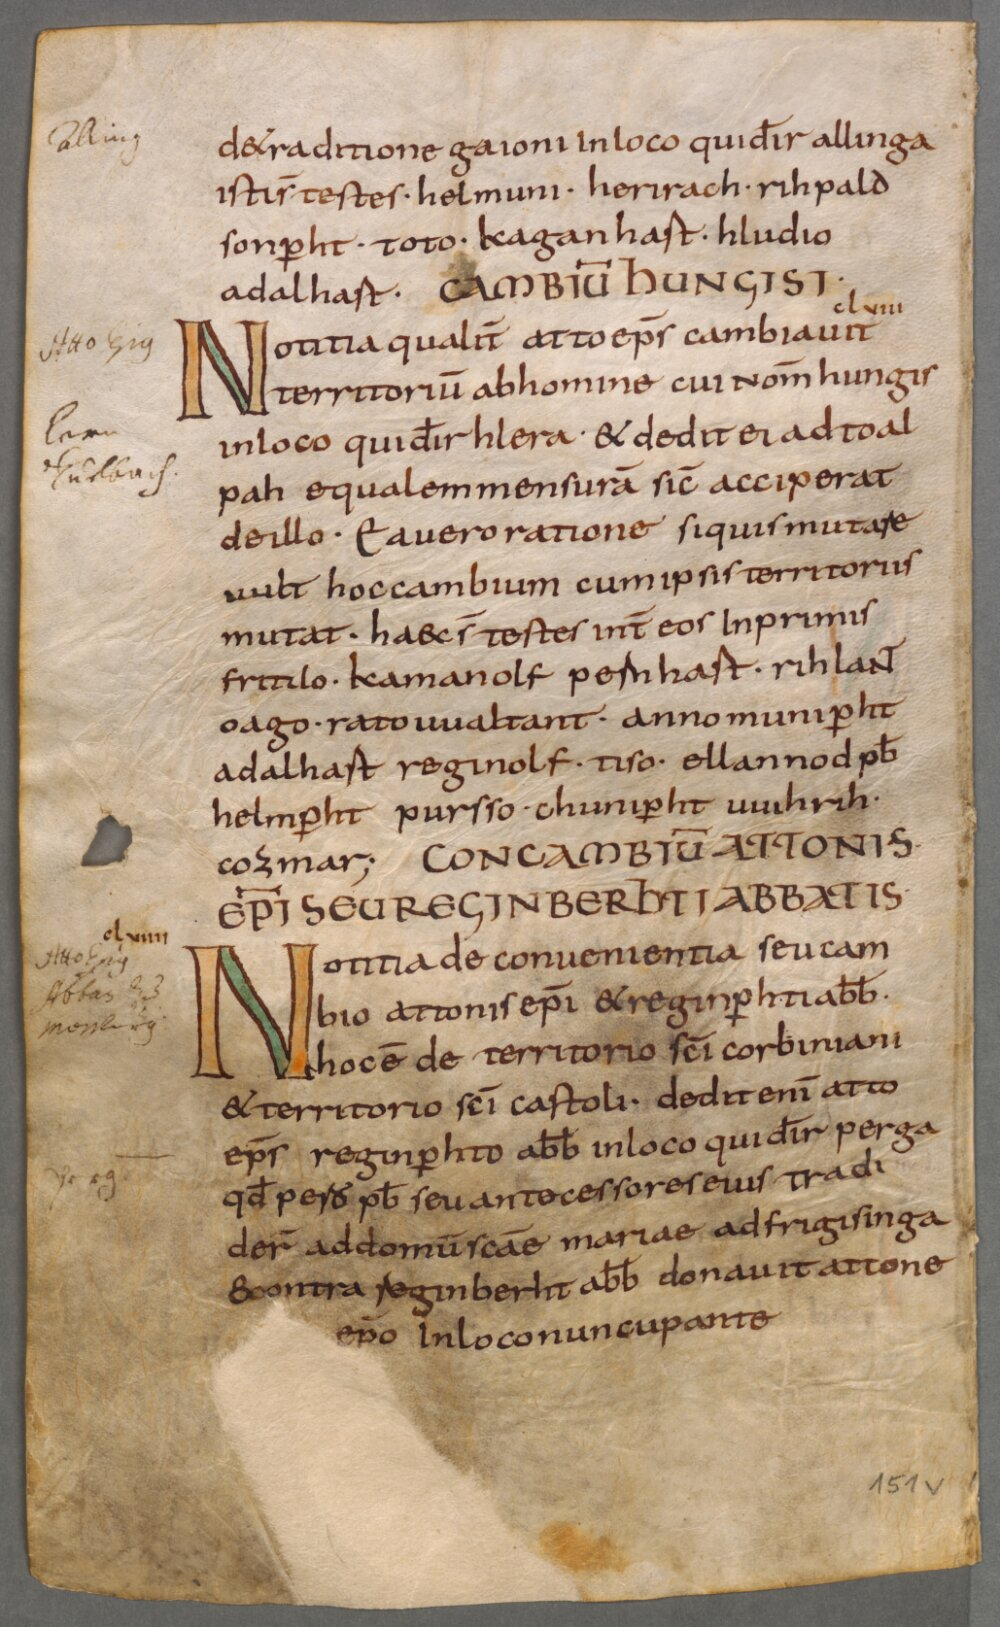 Alling
de &raditione gaioni In loco qui dr̄ allinga
istis̄ testes · helmuni · herirach · rihpald
sonp̱ht · toto · kaganhast · hludio
adalhast · CAMBIŪ HUNGISI ·
clviii
Atto Eps
Notitia qualit̄ atto ep̄s cambiauit
territoriū ab homine cui nom̄ hungis
in loco qui dr̄ hlera · & dedit ei ad toal
pah equalem mensurā sic̄ acciperat
de illo · Ea uero ratione si quis mutare
uult hoc cambium cum ipsis territoriis
mutat · haec s̄ testes int̄ eos In primis
fritilo · kamanolf pesnhast · rihlant̄
oago · rato uualtant · anno munip̱ht
adalhast reginolf · tiso · ellannod pb̄
helmp̱ht pursso · chunip̱ht uuihrih ·
cozmar; CONCAMBIŪ ATTONIS
EP̄I SEU REGINBERHTI ABBATIS ·
clviiii
Notitia de conuenientia seu cam
bio attonis ep̄i & reginp̱hti abb̄ ·
hoc ē de territorio sc̄i corbiniani
& territorio sc̄i castoli · dedit eni̅ atto
ep̄s reginp̱hto abb̄ in loco qui dr̄ perga
qd̄ peso pb̄ seu antecessores eius tradi
der̄ ad domū sc̄ae mariae ad frigisinga
& contra reginberht abb̄ donauit attone
ep̄o In loco nuncupante
151v